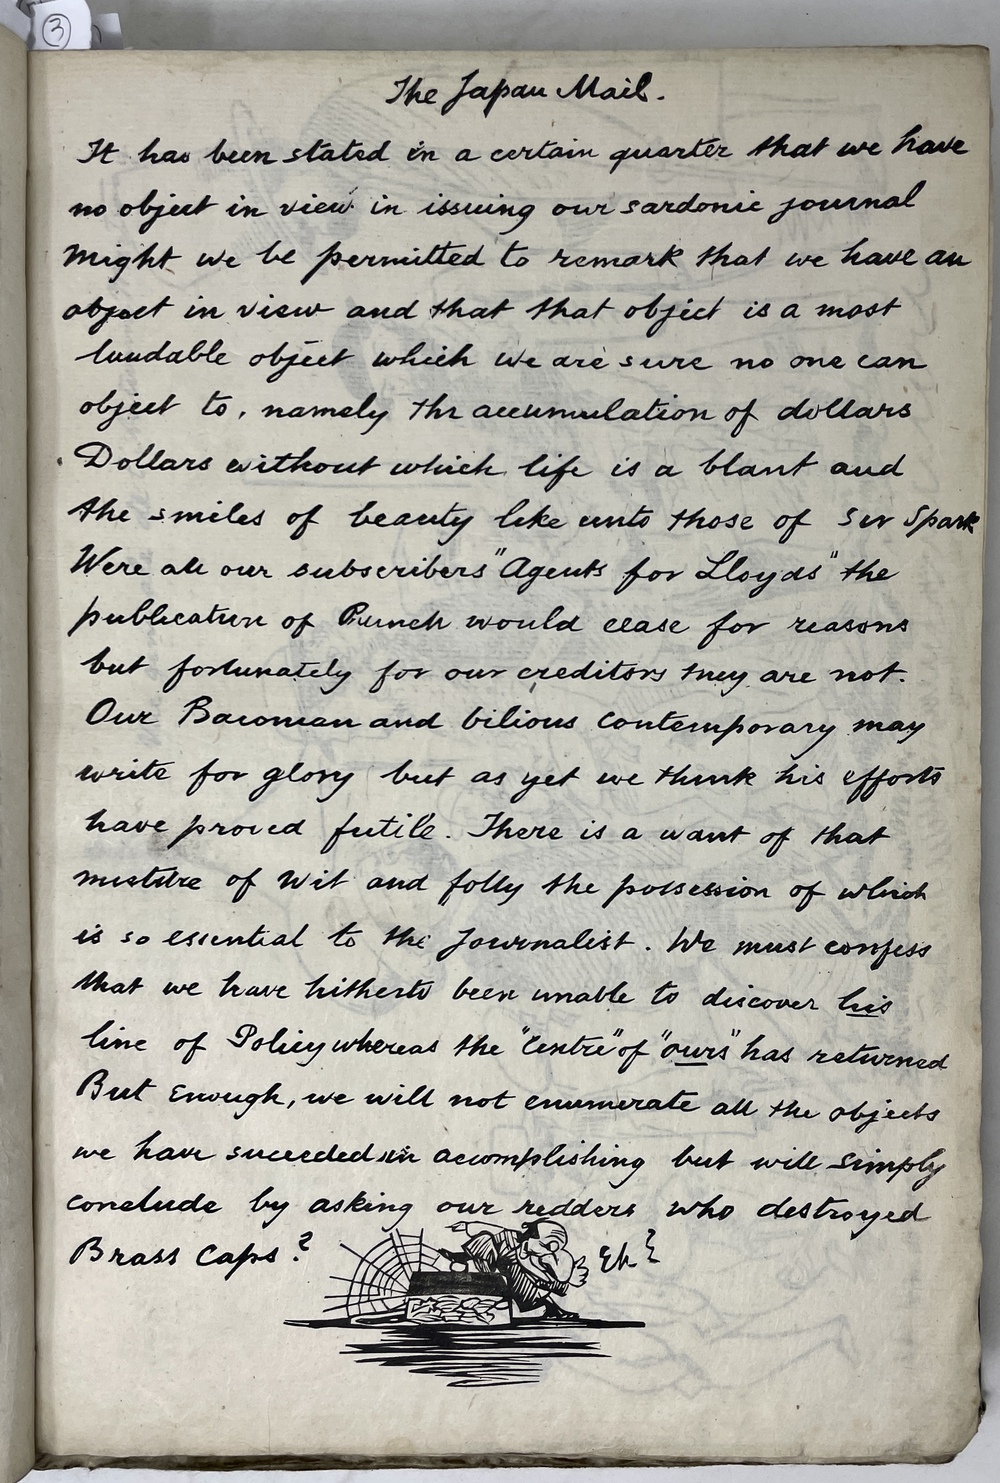 3
The Japan Mail.
It has been stated in a certain quarter that we have
no object in view in issuing our sardonic journal
Might we be permitted to remark that we have an
object in view and that that object is a most
laudable object which we are sure no one can
object to, namely the accumulation of dollars
Dollars without which life is a blank and
the smiles of beauty like unto those of Ser Spark
Were all our subscribers "Agents for Lloyds" the
publication of Punch would cease for reasons
but fortunately for our creditors they are not.
Our Baconian and bilious contemporary may
write for glory but as yet we think his efforts
have proved futile. There is a want of that
mixture of Wit and folly the possession of which
is so essential to the Journalist. We must confess
that we have hitherto been unable to discover his
line of Policy whereas the "Centre" of "ours" has returned
But Enough, we will not enumerate all the objects
we have succeeded in accomplishing but will simply
conclude by asking our redders who destroyed
Brass Caps?
Eh?